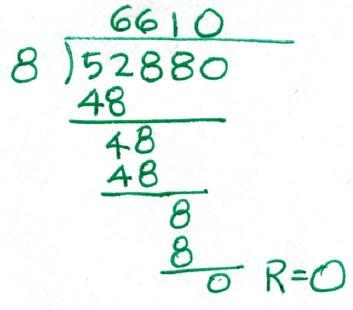 6610
8 )52880
48
48
48
8
8
0 R=0